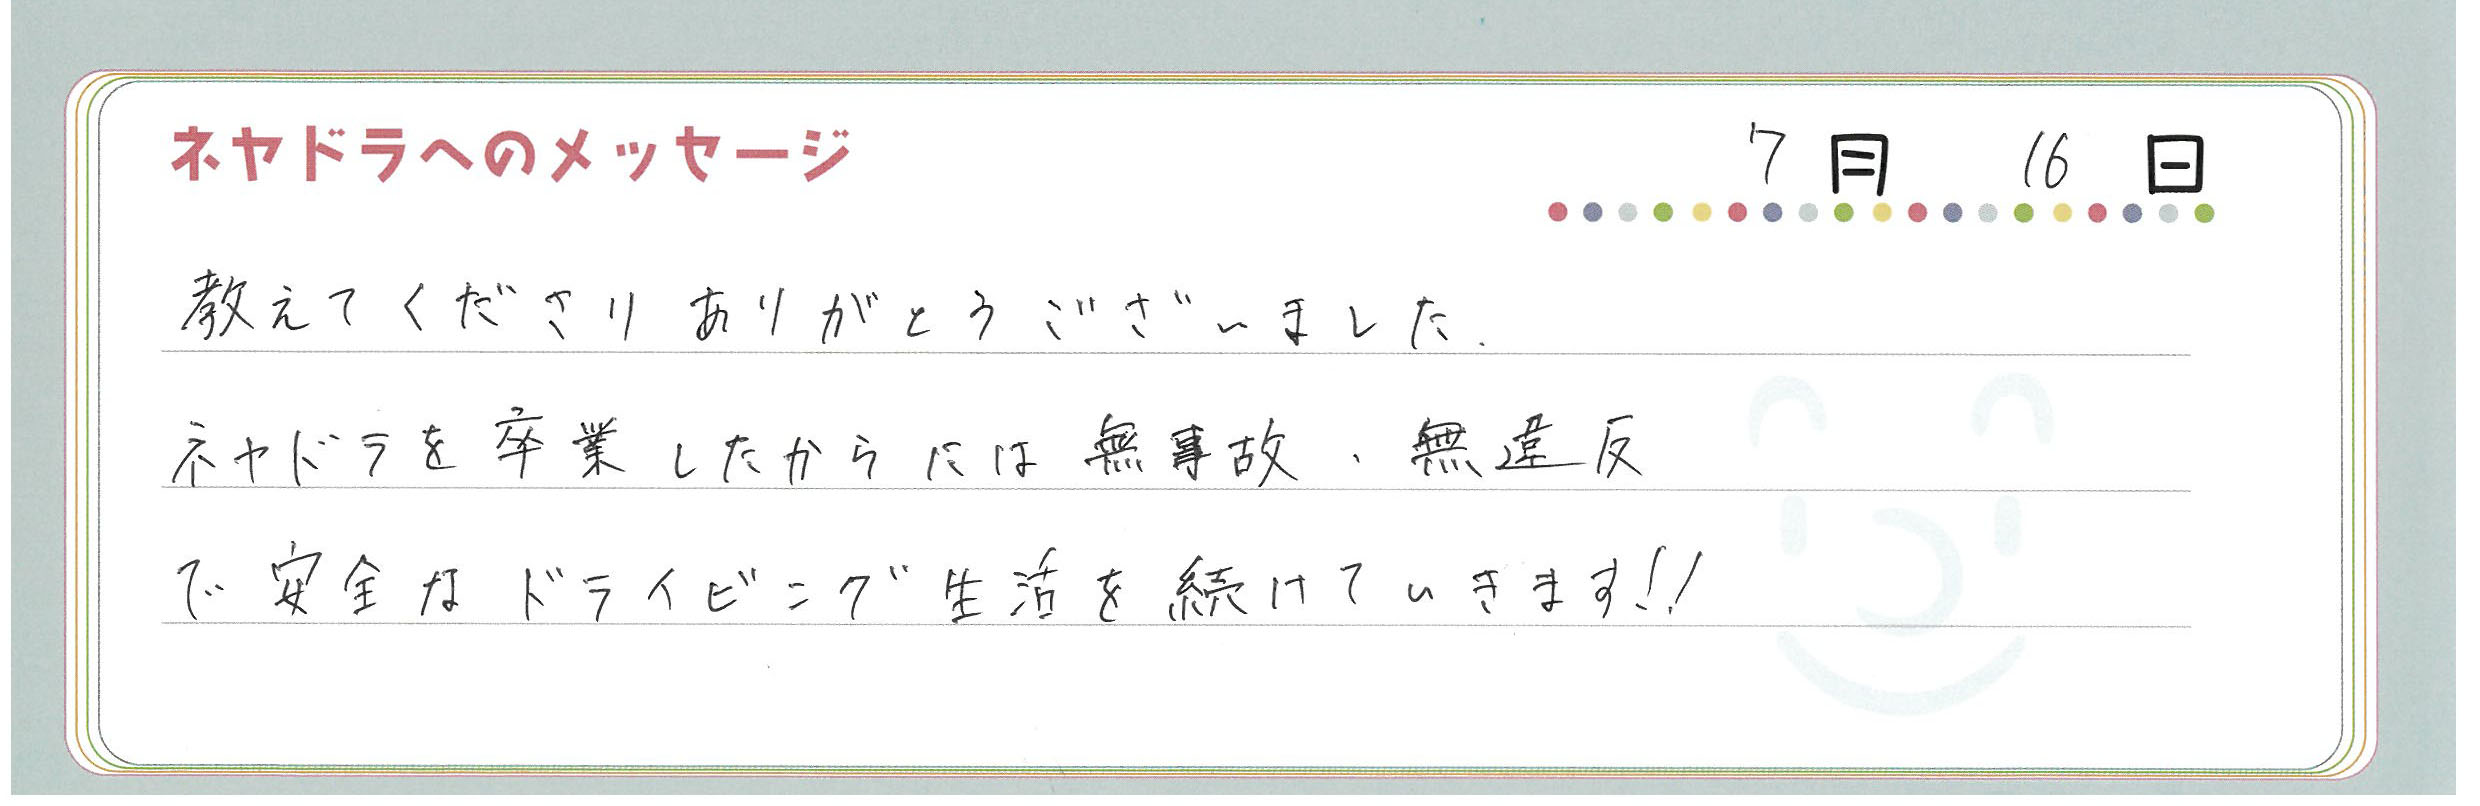 ネヤドラへのメッセージ
7月 16日
教えてくださりありがとうございました.
ネヤドラを卒業したからには無事故・無違反
で安全なドライビング生活を続けていきます!!